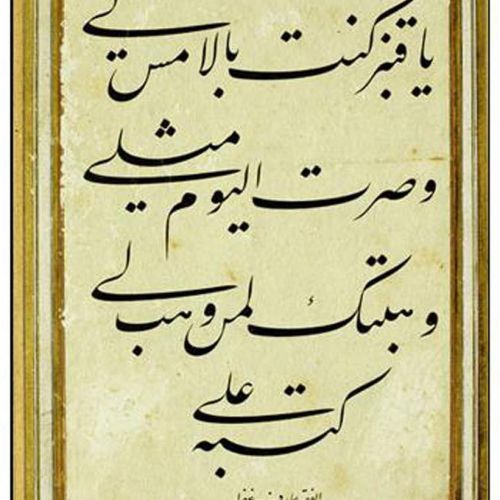 یا قنبر کنت بالامس لي
وصرت الیوم مثلي
وهبتك لمن وهبك لي
کتبه علي